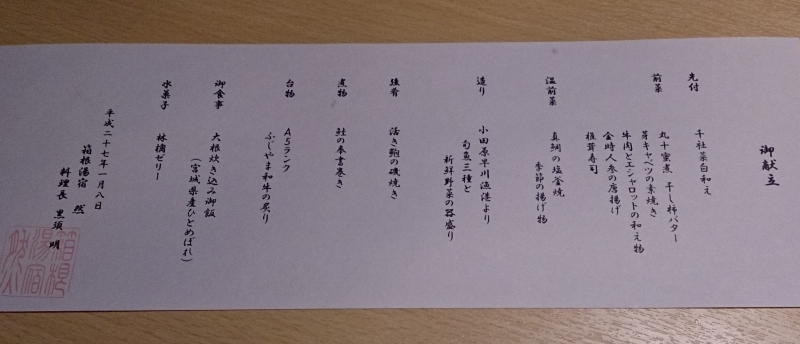 御献立
先付
千社菜白和え
前菜
丸十蜜煮 干し柿バター
芽キャベツの素焼き
牛肉とエシャロットの和え物
金時人参の唐揚げ
椎茸寿司
温前菜
真鯛の塩釜焼
季節の揚げ物
造り
小田原早川漁港より
旬魚三種と
新鮮野菜の器盛り
強肴
活き鮑の磯焼き
煮物
鮭の奉書巻き
台物
A5ランク
ふじやま和牛の炙り
御食事
大根炊き込み御飯
(宮城県産ひとめぼれ)
水菓子
林檎ゼリー
平成二十七年一月八日
箱根湯宿 然
料理長 黒須 明
箱根
湯宿
然